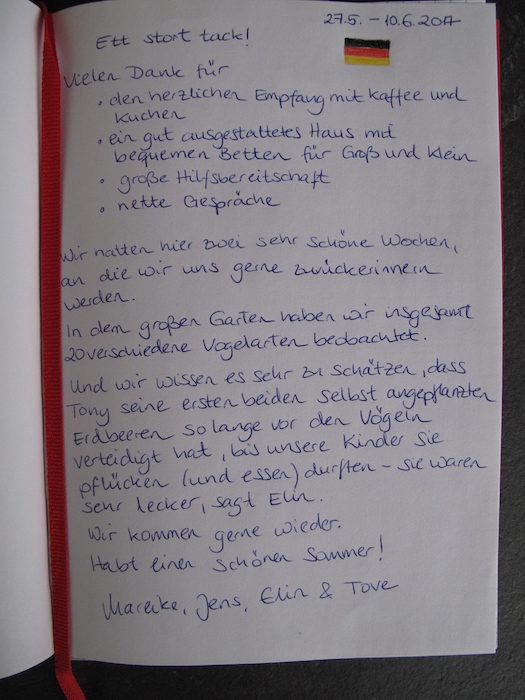 27.5. – 10.6.2017
Ett stort tack!
Vielen Dank für
• den herzlichen Empfang mit Kaffee und
Kuchen
• ein gut ausgestattetes Haus mit
bequemen Betten für Groß und Klein
• große Hilfsbereitschaft
• nette Gespräche
Wir hatten hier zwei sehr schöne Wochen,
an die wir uns gerne zurückerinnern
werden.
In dem großen Garten haben wir insgesamt
20 verschiedene Vogelarten beobachtet.
Und wir wissen es sehr zu schätzen, dass
Tony seine ersten beiden selbst angepflanzten
Erdbeeren so lange vor den Vögeln
verteidigt hat, bis unsere Kinder sie
pflücken (und essen) durften – sie waren
sehr lecker, sagt Elin.
Wir kommen gerne wieder.
Habt einen schönen Sommer!
Mareike, Jens, Elin & Tove